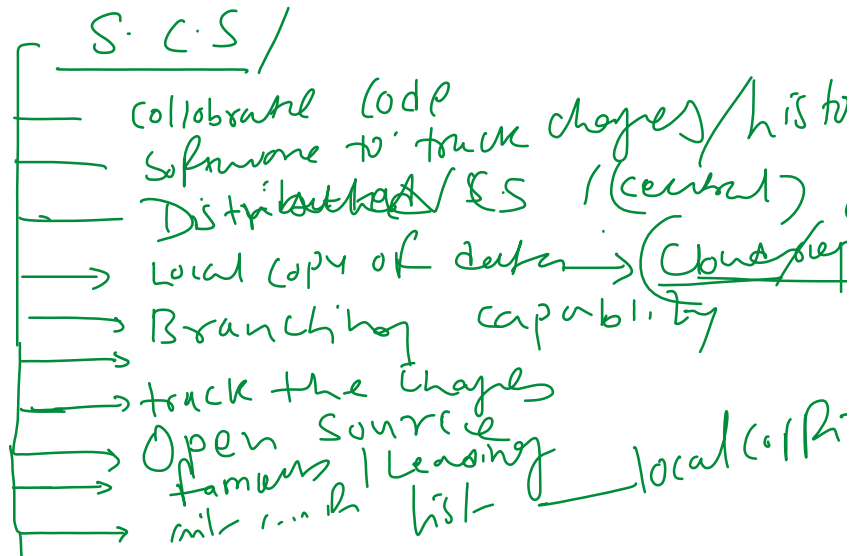 S. C. S /
Collobrate Code
Software to track changes / histo
Distributted / (central)
Local copy of data → (Cloud/rep
Branching capablity
track the changes
Open source
famous / Leading
hist local cop